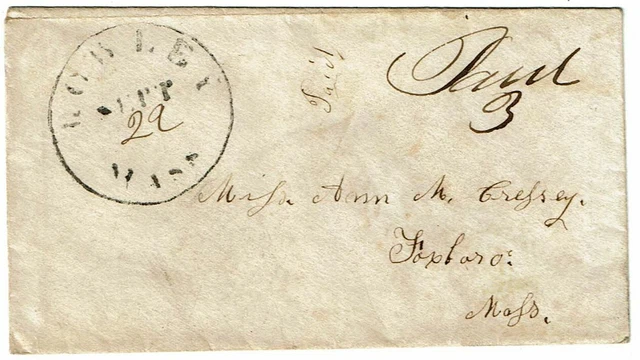 ROWLEY
SEPT
29
MASS
Paid
Paid
3
Miſs. Ann M. Creſsey.
Foxboro:
Maſs.